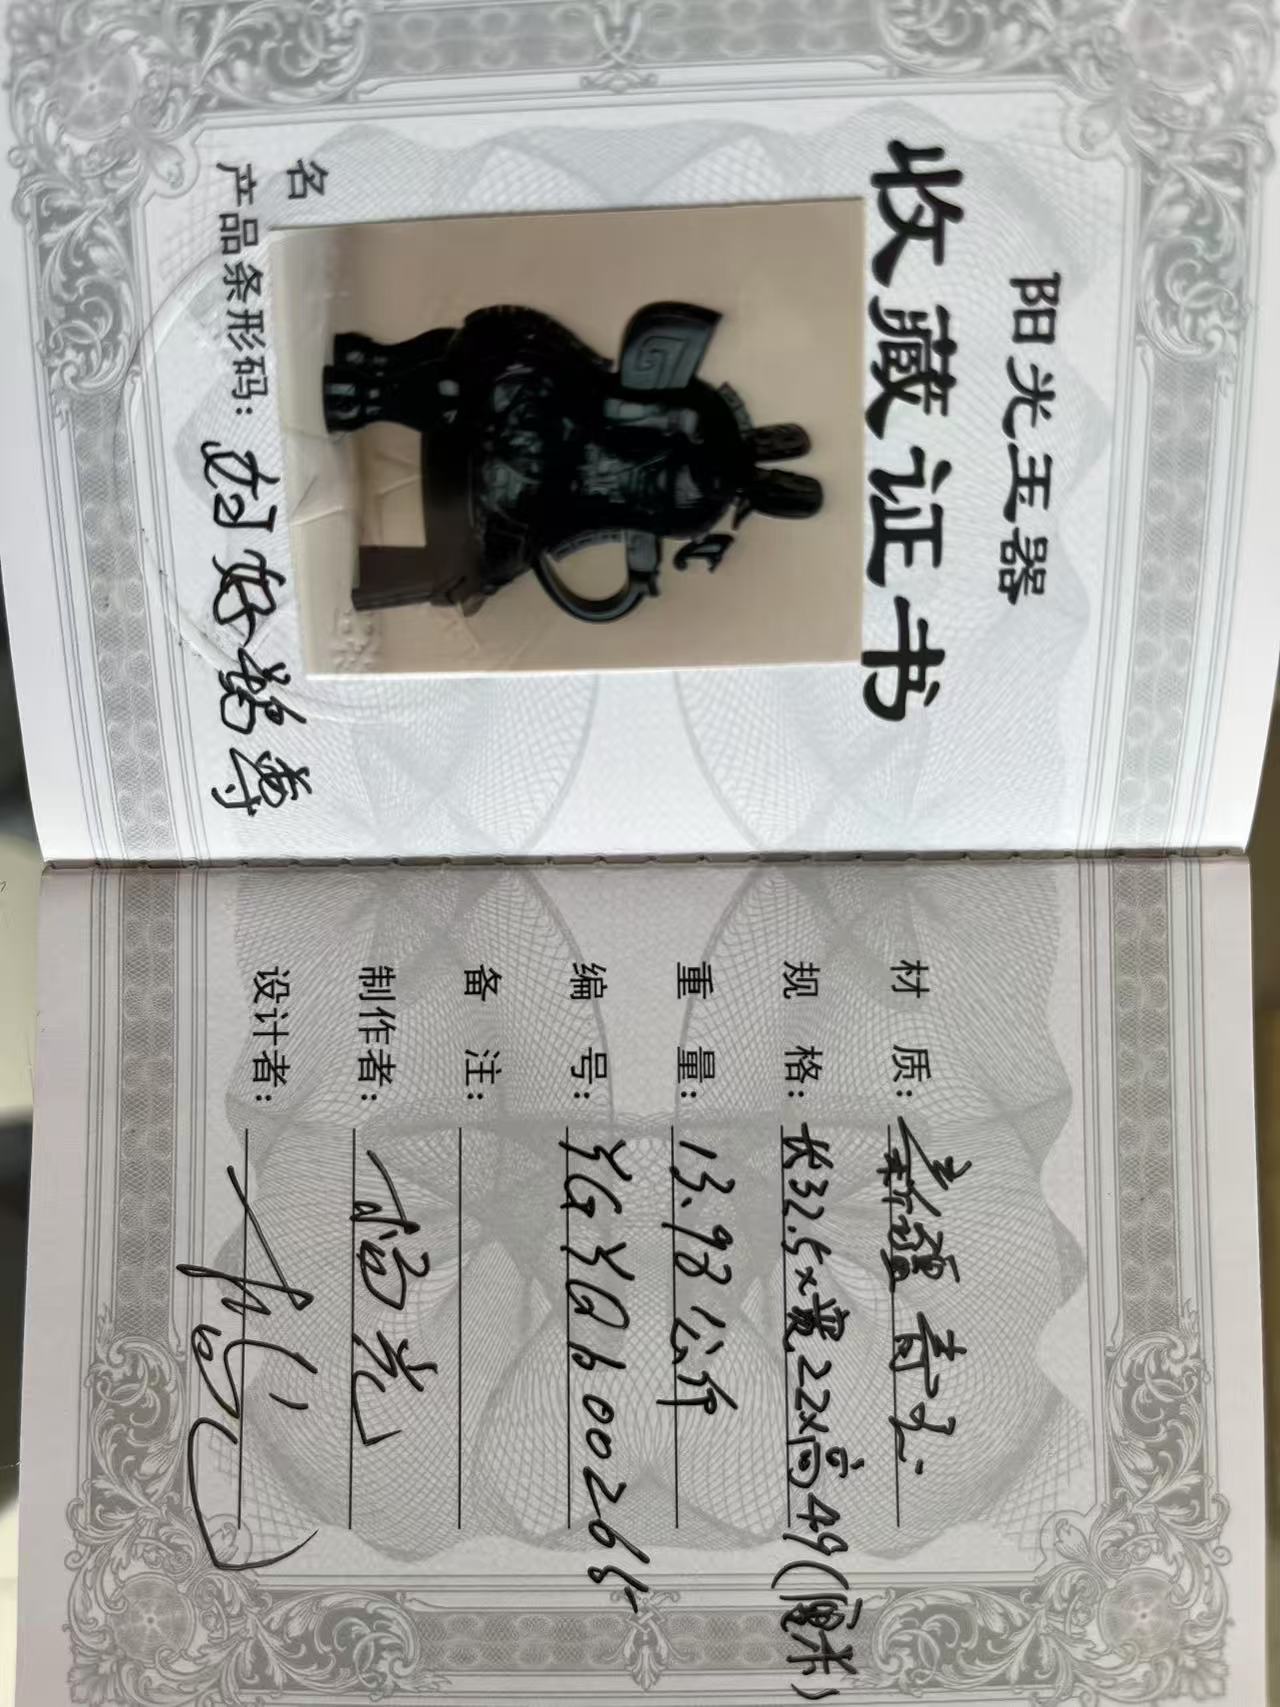 阳光玉器
收藏证书
名
产品条形码: 妇好鸮尊
材 质: 新疆青玉
规 格: 长32.5×宽22×高49(厘米)
重 量: 13.98公斤
编 号: YGYQb00265
备 注:
制作者: 杨光
设计者: